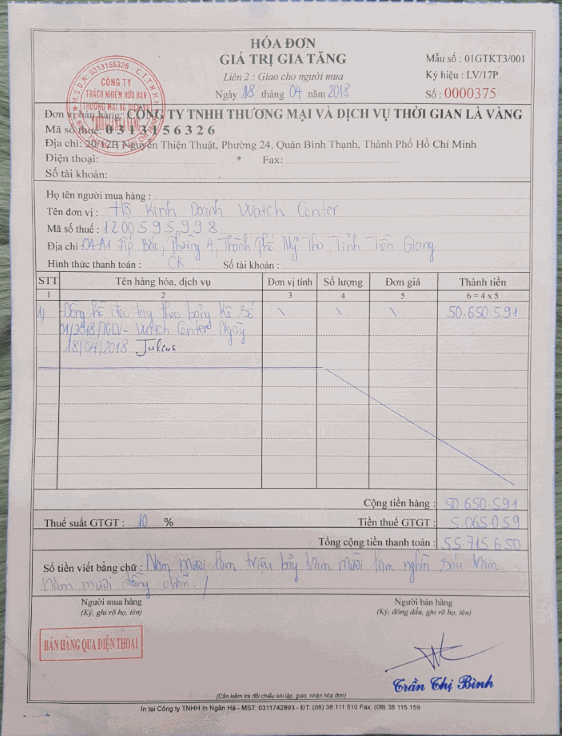 HÓA ĐƠN
GIÁ TRỊ GIA TĂNG
Liên 2 : Giao cho người mua
Ngày 18 tháng 04 năm 2018
Mẫu số : 01GTKT3/001
Ký hiệu : LV/17P
Số : 0000375
M.S.D.N: 0313156326 - C.T.T.N.H.H
CÔNG TY
TRÁCH NHIỆM HỮU HẠN
THƯƠNG MẠI VÀ DỊCH VỤ
Đơn vị bán hàng: CÔNG TY TNHH THƯƠNG MẠI VÀ DỊCH VỤ THỜI GIAN LÀ VÀNG
Mã số thuế: 0313156326
Địa chỉ: 20/12B Nguyễn Thiện Thuật, Phường 24, Quận Bình Thạnh, Thành Phố Hồ Chí Minh
Điện thoại: * Fax:
Số tài khoản:
Họ tên người mua hàng :
Tên đơn vị : HB Kinh Doanh Watch Center
Mã số thuế : 1200595998
Địa chỉ : Ấp Bắc, Phường 4, Thành Phố Mỹ Tho Tỉnh Tiền Giang
Hình thức thanh toán : CK Số tài khoản :
STT Tên hàng hóa, dịch vụ Đơn vị tính Số lượng Đơn giá Thành tiền
1 2 3 4 5 6 = 4 x 5
1) Đồng hồ đeo tay theo bảng kê số \ \ \ 50.650.591
01/2018/TGLV- Watch Center Ngày
18/04/2018 Julius
Cộng tiền hàng : 50.650.591
Thuế suất GTGT : 10 % Tiền thuế GTGT : 5.065.059
Tổng cộng tiền thanh toán : 55.715.650
Số tiền viết bằng chữ : Năm mươi lăm triệu bảy trăm mười lăm nghìn sáu trăm
năm mươi đồng chẵn. /
Người mua hàng Người bán hàng
(Ký, ghi rõ họ, tên) (Ký, đóng dấu, ghi rõ họ, tên)
BÁN HÀNG QUA ĐIỆN THOẠI
Trần Thị Bình
(Cần kiểm tra đối chiếu khi lập, giao, nhận hóa đơn)
In tại Công ty TNHH In Ngân Hà - MST: 0311742893 - ĐT: (08) 38 111 510 Fax: (08) 38 115 159